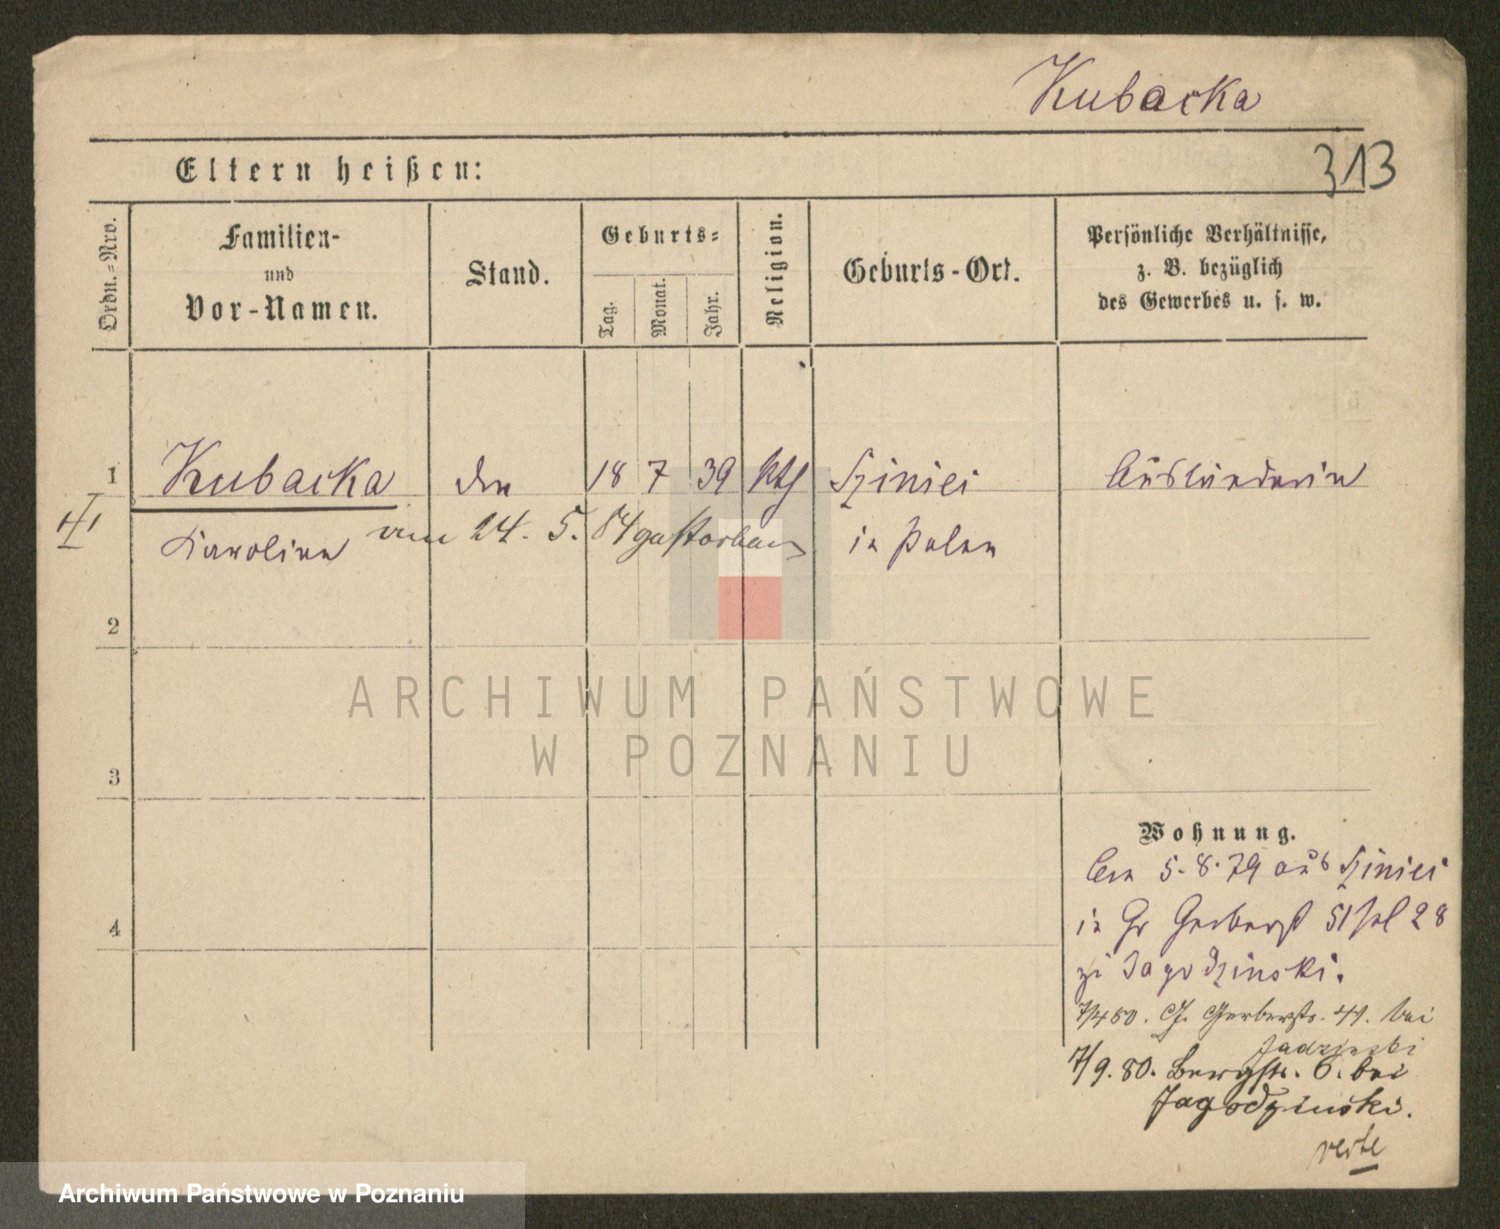 Kubacka
313
Eltern heißen:
Ordn.=Nro.
Familien-
und
Vor-Namen.
Stand.
Geburts=
Tag.
Monat.
Jahr.
Religion.
Geburts-Ort.
Persönliche Verhältnisse,
z. B. bezüglich
des Gewerbes u. s. w.
1
Kubacka
18 7 39 kth
Ausländerin
Karoline
am 24. 5. 84 gestorben
in Polen
2
3
4
Wohnung.
5.8.79 aus
in Gr Gerberst 51 28
zu Jagodzinski.
7/4 80. G. Gerberstr. 41. bei
7/9. 80. Bergstr. 6. bei
Jagodzinski.
verte
ARCHIWUM PAŃSTWOWE
W POZNANIU
Archiwum Państwowe w Poznaniu